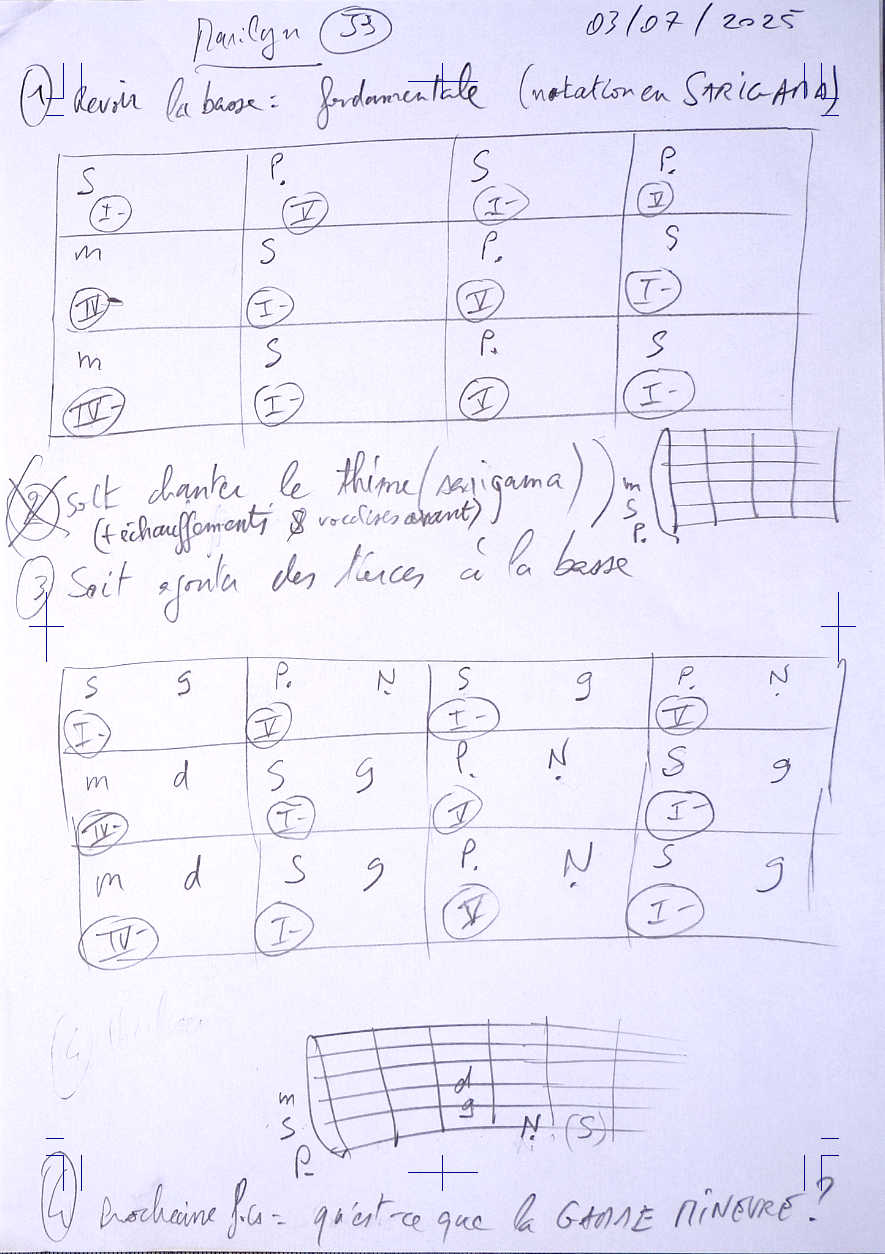 Marilyn J3 03/07/2025
① Revoir la basse : fondamentale (notation en SARIGAMA)
S P. S P.
I- V I- V
m S P. S
IV- I- V I-
m S P. S
IV- I- V I-
② soit chanter le thème (sarigama)
(+ échauffements & vocalises avant)
m
S
P.
③ Soit ajouter des tierces à la basse
S g P. Ṇ S g P. Ṇ
I- V I- V
m d S g P. Ṇ S g
IV- I- V I-
m d S g P. Ṇ S g
IV- I- V I-
d
m g
S Ṇ (S)
P.
④ prochaine fois = qu'est-ce que la GAMME MINEURE ?